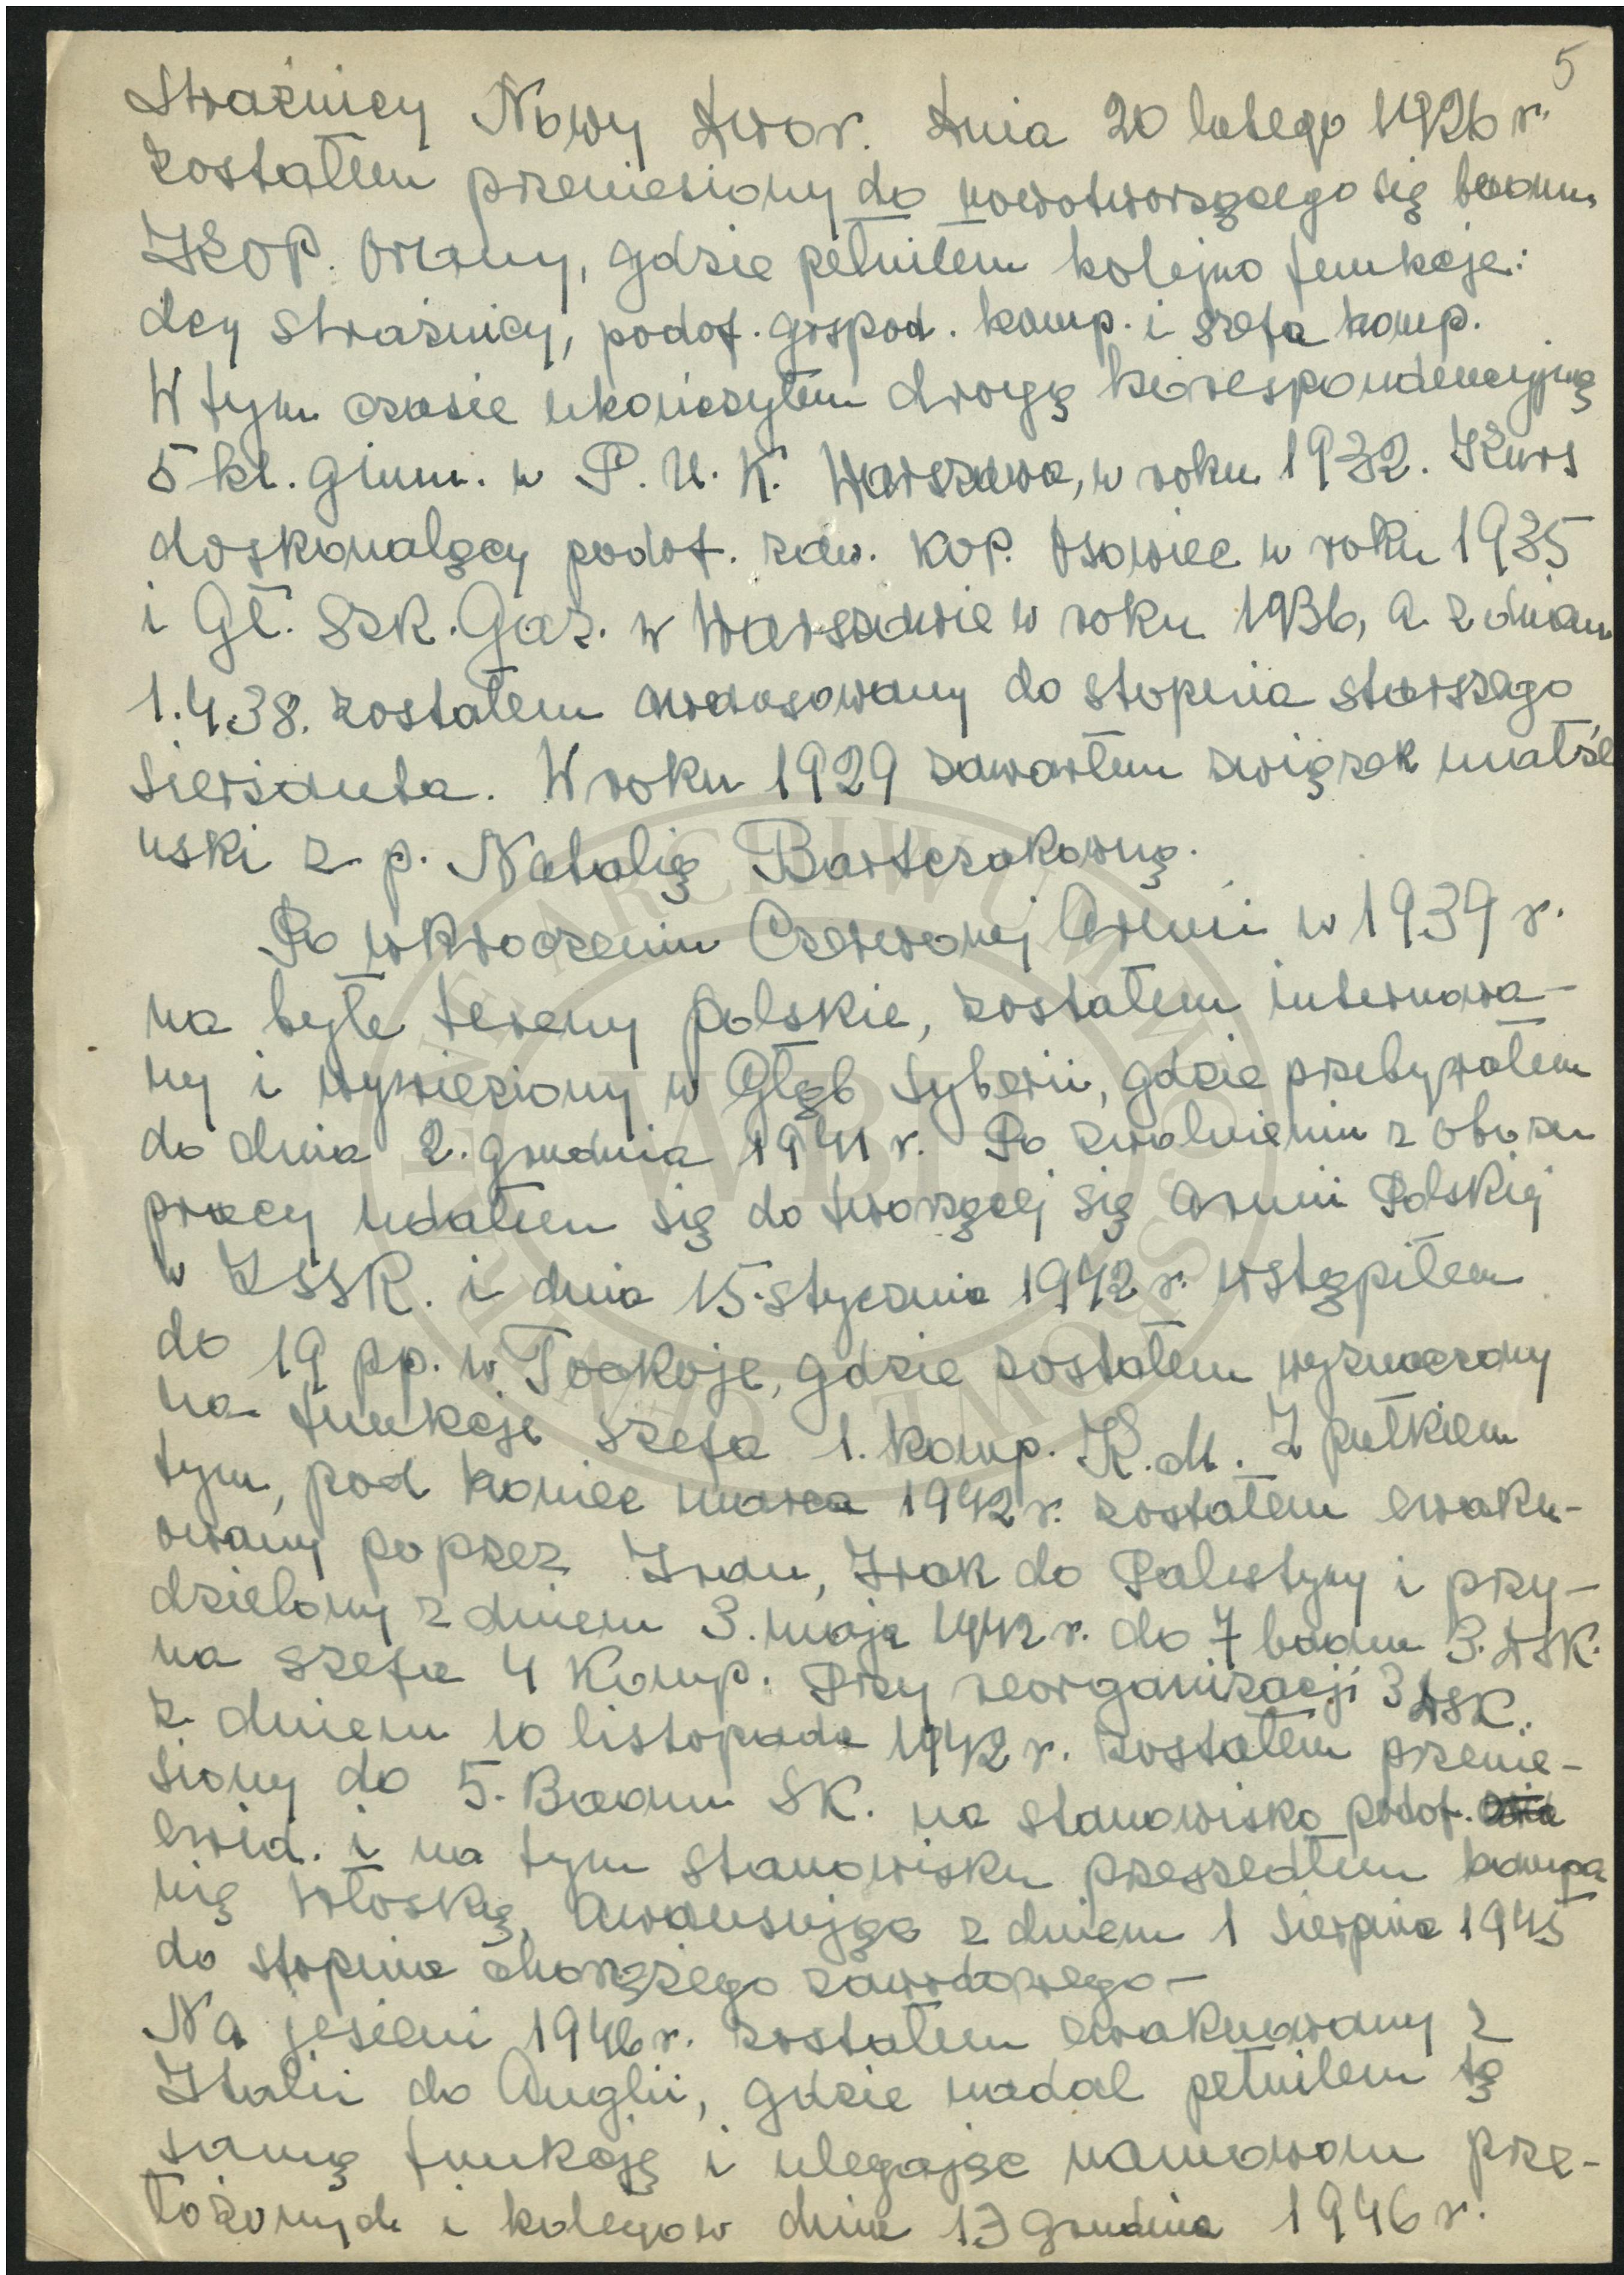 5
Strażnicy Nowy Dwór. Dnia 20 lutego 1926 r.
zostałem przeniesiony do nowotworzącego się baonu
KOP. Orany, gdzie pełniłem kolejno funkcje:
dcy strażnicy, podof. gospod. komp. i szefa komp.
W tym czasie ukończyłem drogą korespondencyjną
5 kl. gimn. w P.U.K. Warszawa, w roku 1932. Kurs
doskonalący podof. zaw. KOP. Osowiec w roku 1935
i Gł. Szk. Gaz. w Warszawie w roku 1936, a z dniem
1.4.38. zostałem awansowany do stopnia starszego
sierżanta. W roku 1929 zawarłem związek małże
ński z p. Natalią Bartczakowną.
Po wkroczeniu Czerwonej Armii w 1939 r.
na byłe tereny polskie, zostałem internowa-
ny i wywieziony w głąb Syberii, gdzie przebywałem
do dnia 2. grudnia 1941 r. Po zwolnieniu z obozu
pracy udałem się do tworzącej się Armii Polskiej
w ZSSR. i dnia 15. stycznia 1942 r. wstąpiłem
do 19 pp. w Tockoje, gdzie zostałem wyznaczony
na funkcje szefa 1. komp. K.M. Z pułkiem
tym, pod koniec marca 1942 r. zostałem ewaku-
owany poprzez Iran, Irak do Palestyny i przy-
dzielony z dniem 3. maja 1942 r. do 7 baonu 3. DSK.
na szefa 4 Komp. Przy reorganizacji 3 DSK.
z dniem 10 listopada 1942 r. zostałem przenie-
siony do 5. Baonu SK. na stanowisko podof.
ewid. i na tym stanowisku przeszedłem kampa
nię Włoską, awansując z dniem 1 sierpnia 1945
do stopnia chorążego zawodowego-
Na jesieni 1946 r. zostałem ewakuowany z
Italii do Anglii, gdzie nadal pełniłem tą
samą funkcję i ulegając namowom prze-
łożonych i kolegów dnia 13 grudnia 1946 r.